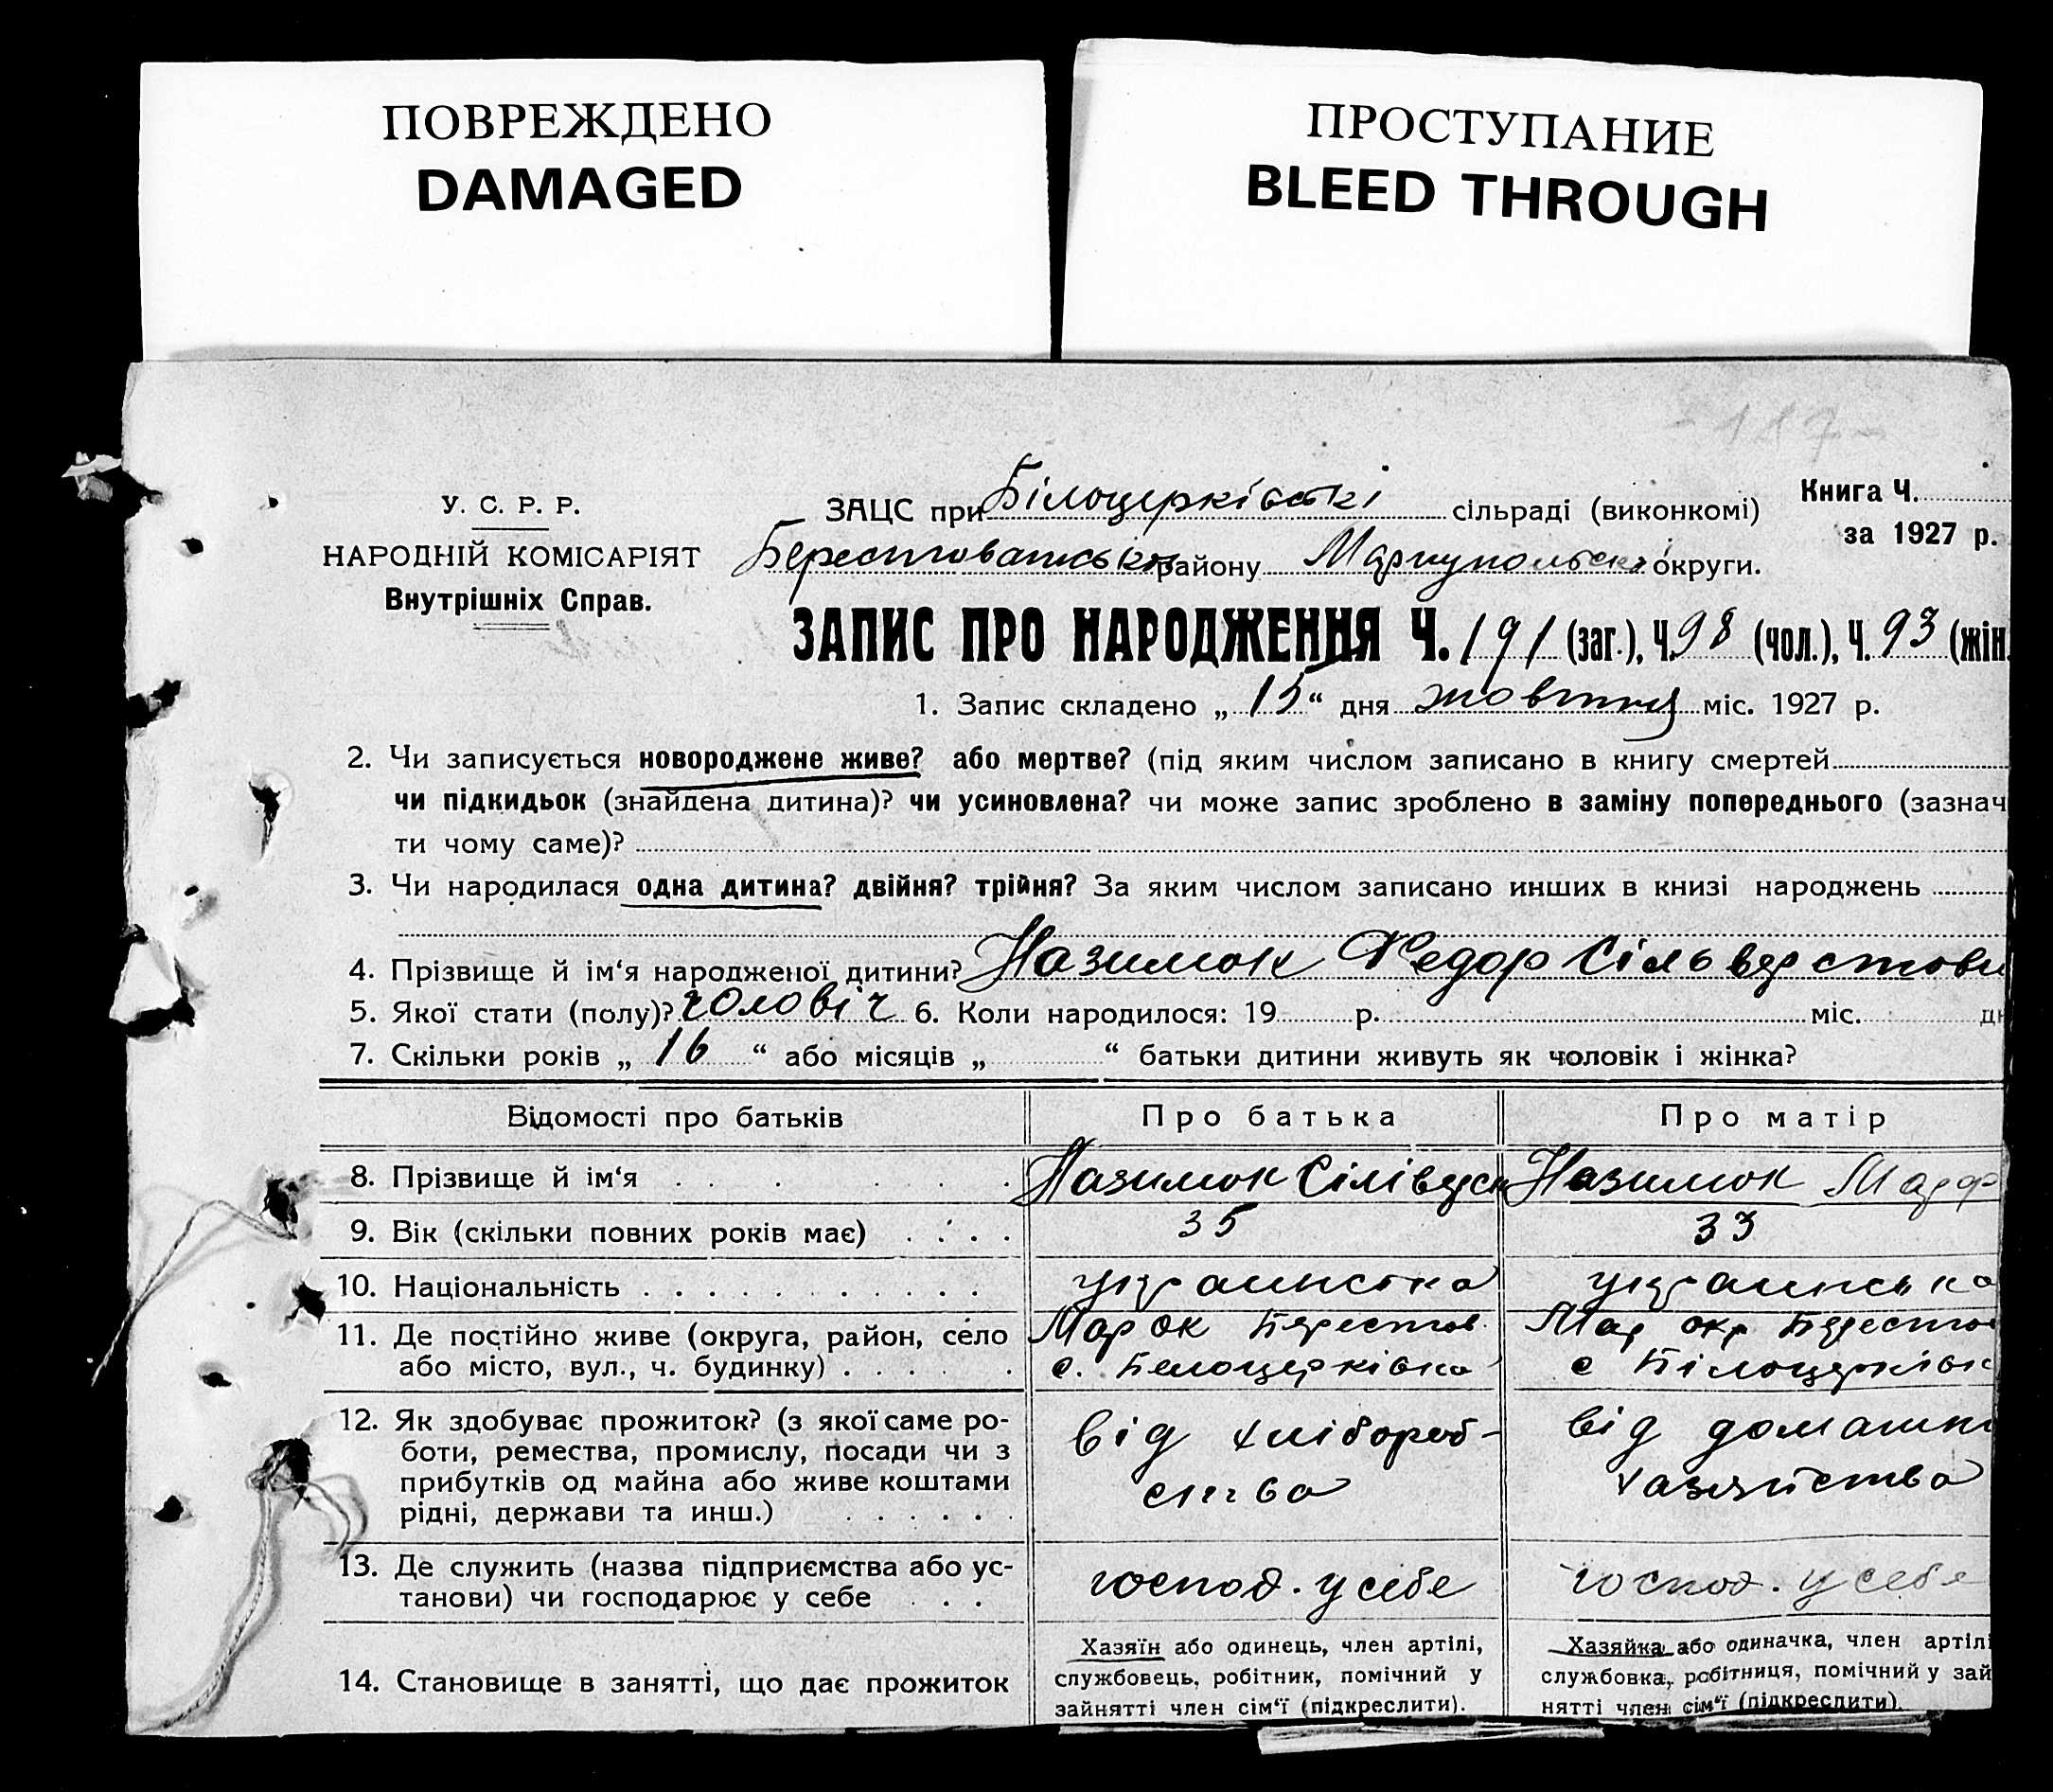 ПОВРЕЖДЕНО
DAMAGED
ПРОСТУПАНИЕ
BLEED THROUGH
- 187 -
У. С. Р. Р.
НАРОДНІЙ КОМІСАРІЯТ
Внутрішніх Справ.
Книга Ч.
за 1927 р.
ЗАЦС при Білоцерківскі сільраді (виконкомі)
району Маріупольської округи.
ЗАПИС ПРО НАРОДЖЕННЯ Ч. 191 (заг.), Ч. 98 (чол.), Ч. 93 (жін.
1. Запис складено „ 15 “ дня жовтня міс. 1927 р.
2. Чи записується новороджене живе? або мертве? (під яким числом записано в книгу смертей
чи підкидьок (знайдена дитина)? чи усиновлена? чи може запис зроблено в заміну попереднього (зазнач
ти чому саме)?
3. Чи народилася одна дитина? двійня? трійня? За яким числом записано инших в книзі народжень
4. Прізвище й ім‘я народженої дитини? Назимок Федор Сільверстови
5. Якої стати (полу)? чоловіч 6. Коли народилося: 19 р. міс. дн
7. Скільки років „ 16 “ або місяців „ “ батьки дитини живуть як чоловік і жінка?
Відомості про батьків Про батька Про матір
8. Прізвище й ім‘я Назимок Сілівест Назимок Марф
9. Вік (скільки повних років має) 35 33
10. Національність украинска украинська
11. Де постійно живе (округа, район, село Мар ок Берестов. Мар окр Берестов
або місто, вул., ч. будинку) с. Белоцерківка с Білоцерківк
12. Як здобуває прожиток? (з якої саме ро-
боти, ремества, промислу, посади чи з від хлібороб- від домашн
прибутків од майна або живе коштами ства хазяйства
рідні, держави та инш.)
13. Де служить (назва підприємства або ус-
танови) чи господарює у себе господ. у себе господ. у себе
14. Становище в занятті, що дає прожиток
Хазяїн або одинець, член артілі,
службовець, робітник, помічний у
зайнятті член сім‘ї (підкреслити).
Хазяйка або одиначка, член артілі
службовка, робітниця, помічний у зай
нятті член сім‘ї (підкреслити).